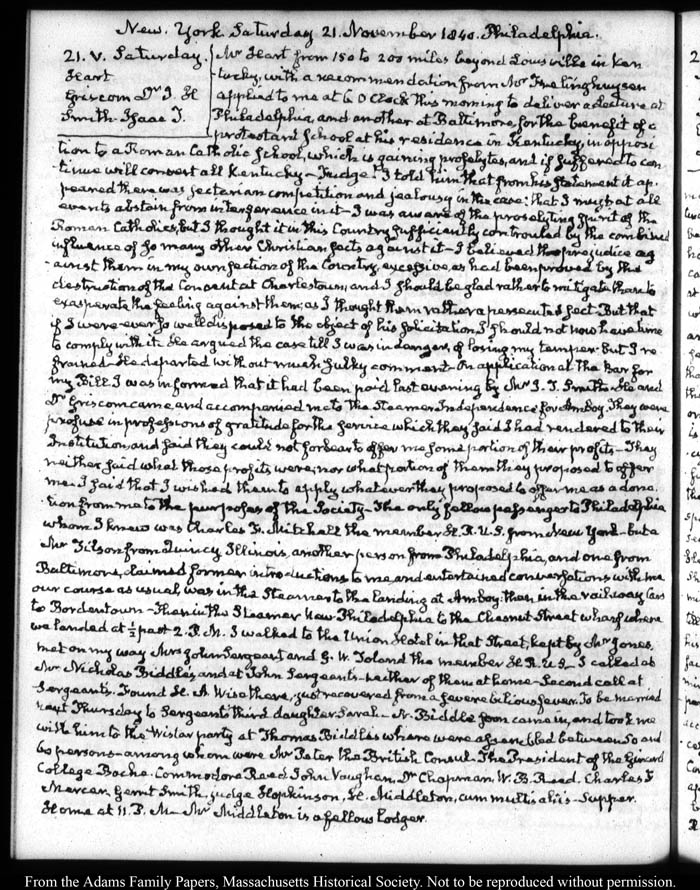 New. York Saturday 21. November 1840. Philadelphia.
21. V. Saturday.
Heart
Griscom Dr J. H
Smith. Isaac T.
Mr Heart from 150 to 200 miles beyond Louisville in Ken
tucky, with a recommendation from Mr Frelinghuysen
applied to me at 6 O Clock this morning to deliver a Lecture at
Philadelphia, and another at Baltimore, for the benefit of a
protestant School at his residence in Kentucky, in opposi
tion to a Roman Catholic School, which is gaining proselytes, and if suffered to con-
tinue will convert all Kentucky – I told him that from his statement it ap-
peared there was sectarian competition and jealousy in the case: that I must at all
events abstain from interference in it – I was aware of the proselyting spirit of the
Roman Catholics, but I thought it in this Country sufficiently controuled by the combined
influence of so many other Christian sects against it – I believed the prejudice ag
-ainst them in my own section of the Country, excessive, as had been proved by the
destruction of the Convent at Charlestown, and I should be glad rather to mitigate than to
exasperate the feeling against them; as I thought them rather a persecuted sect. But that
if I were ever so well disposed to the object of his solicitation, I should not now have time
to comply with it. He argued the case till I was in danger of losing my temper. but I re
frained. He departed without much sulky comment. On application at the Bar for
my Bill I was informed that it had been paid last evening by Mr I. T. Smith. He and
Dr Griscom came, and accompanied me to the Steamer Independence for Amboy. They were
profuse in professions of gratitude for the service which they said I had rendered to their
Institution, and said they could not forbear to offer me some portion of their profits – They
neither said what those profits were, nor what portion of them they proposed to offer
me. I said that I wished them to apply whatever they proposed to offer me as a dona
tion from me to the purposes of the Society – The only fellow passenger to Philadelphia
whom I knew was Charles F. Mitchell the member H.R.U.S. from New York – but a
Mr Tilson from Quincy Illinois, another person from Philadelphia, and one from
Baltimore, claimed former introductions to me, and entertained conversations with me
our course as usual was in the Steamer to the landing at Amboy: then in the railway Cars
to Bordentown – Then in the Steamer New-Philadelphia to the Chesnut Street wharf where
we landed at ½ past 2. P.M. I walked to the Union Hotel in that Street, kept by Mr Jones.
met on my way Mrs John Sergeant and G. W. Toland the member H.R.U.S – I called at
Mr Nicholas Biddle's, and at John Sergeants – neither of them at home – Second call at
Sergeants. Found H. A Wise there, just recovered from a severe bilious fever. To be married
next Thursday to Sergeants third daughter Sarah – N. Biddle soon came in, and took me
with him to the Wistar party at Thomas Biddles where were assembled between 50 and
60 persons – among whom were Mr Peter the British Consul – The President of the Girard
College Bache. Commodore Read John Vaughan, Dr Chapman, W. B. Reed. Charles F
Mercer, Gerrit Smith, judge Hopkinson, H. Middleton, cum multis aliis – Supper.
Home at 11. P. M – Mr Middleton is a fellow lodger.
From the Adams Family Papers, Massachusetts Historical Society. Not to be reproduced without permission.